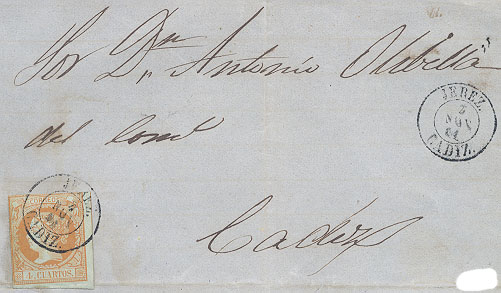 Sor Dn Antonio
del Coml
Cadiz
JEREZ.
5
NOV
61
CADIZ.
CORREOS
4 CUARTOS.
JEREZ.
NOV
CADIZ.